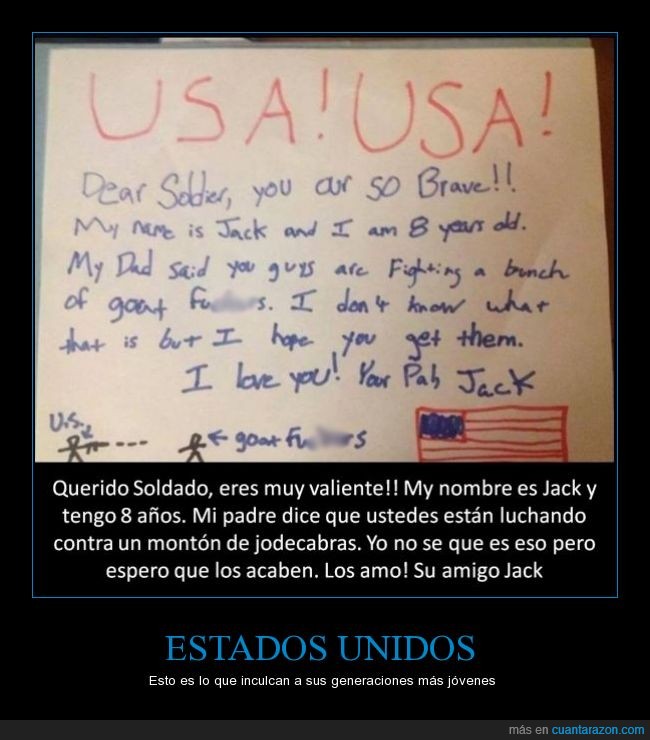 USA! USA!
Dear Soldier, you our so Brave!!
My name is Jack and I am 8 years old.
My Dad said you guys are Fighting a bunch
of goat fu s. I don't know what
that is but I hope you get them.
I love you! Your Pal, Jack
U.S.
goat fu rs
Querido Soldado, eres muy valiente!! My nombre es Jack y
tengo 8 años. Mi padre dice que ustedes están luchando
contra un montón de jodecabras. Yo no se que es eso pero
espero que los acaben. Los amo! Su amigo Jack
ESTADOS UNIDOS
Esto es lo que inculcan a sus generaciones más jóvenes
más en cuantarazon.com